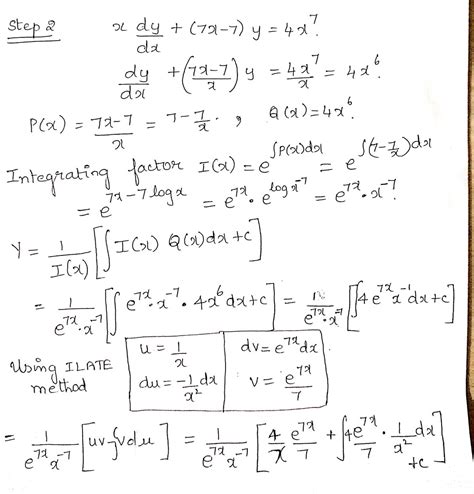 Step 2 x dy/dx + (7x-7) y = 4x^7.
dy/dx + (7x-7/x) y = 4x^7/x = 4x^6.
P(x) = 7x-7/x = 7 - 7/x. , Q(x) = 4x^6.
Integrating factor I(x) = e^∫P(x)dx = e^∫(7-7/x)dx
= e^7x-7logx = e^7x · e^logx^-7 = e^7x · x^-7.
Y = 1/I(x) [∫I(x) Q(x)dx+c]
= 1/e^7x·x^-7 [∫e^7x·x^-7 · 4x^6 dx+c] = 1/e^7x·x^-7 [∫4e^7x x^-1 dx+c]
Using ILATE method
u = 1/x dv = e^7x dx
du = -1/x^2 dx v = e^7x/7
= 1/e^7x x^-7 [uv-∫vdu] = 1/e^7x x^-7 [4/x e^7x/7 + ∫4e^7x/7 · 1/x^2 dx +c]